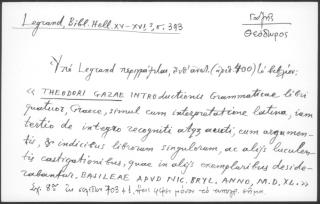 Legrand, Bibl. Hell. XV-XVI, 3, σ. 393
Γαζῆς
Θεόδωρος
Ὑπὸ Legrand περιγράφεται, ἀριθ. 400) τὸ
« THEODORI GAZAE INTROductionis Grammaticae libri
quatuor, Graece, simul cum interpretatione latina, iam
tertio de integro recogniti atque aucti, cum argumen-
tis, & indicibus librorum singulorum, ac aliis luculen-
tis castigationibus, quae in aliis exemplaribus deside-
rabantur. BASILEAE APVD NIC. BRYL. ANNO, M.D.XL. »
8º 703 + 1. μόνον τὸ